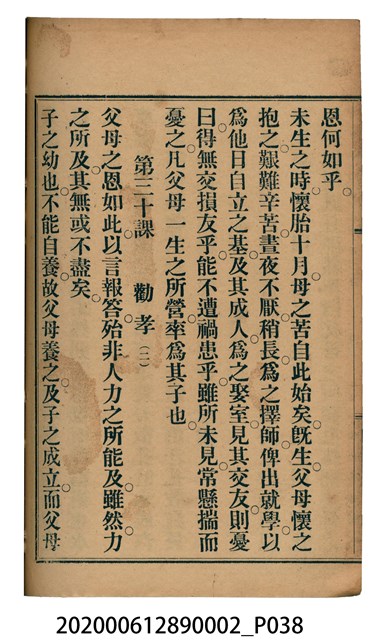 恩何如乎。
未生之時。懷胎十月。母之苦自此始矣。旣生。父母懷之
抱之。艱難辛苦。晝夜不厭。稍長。爲之擇師。俾出就學。以
爲他日自立之基。及其成人。爲之娶室。見其交友。則憂
曰。得無交損友乎。能不遭禍患乎。雖所未見。常懸揣而
憂之。凡父母一生之所營。率爲其子也。
第三十課　勸孝(二)
父母之恩如此。以言報答。殆非人力之所能及。雖然。力
之所及。其無或不盡矣。
子之幼也。不能自養。故父母養之。及子之成立。而父母
202000612890002_P038